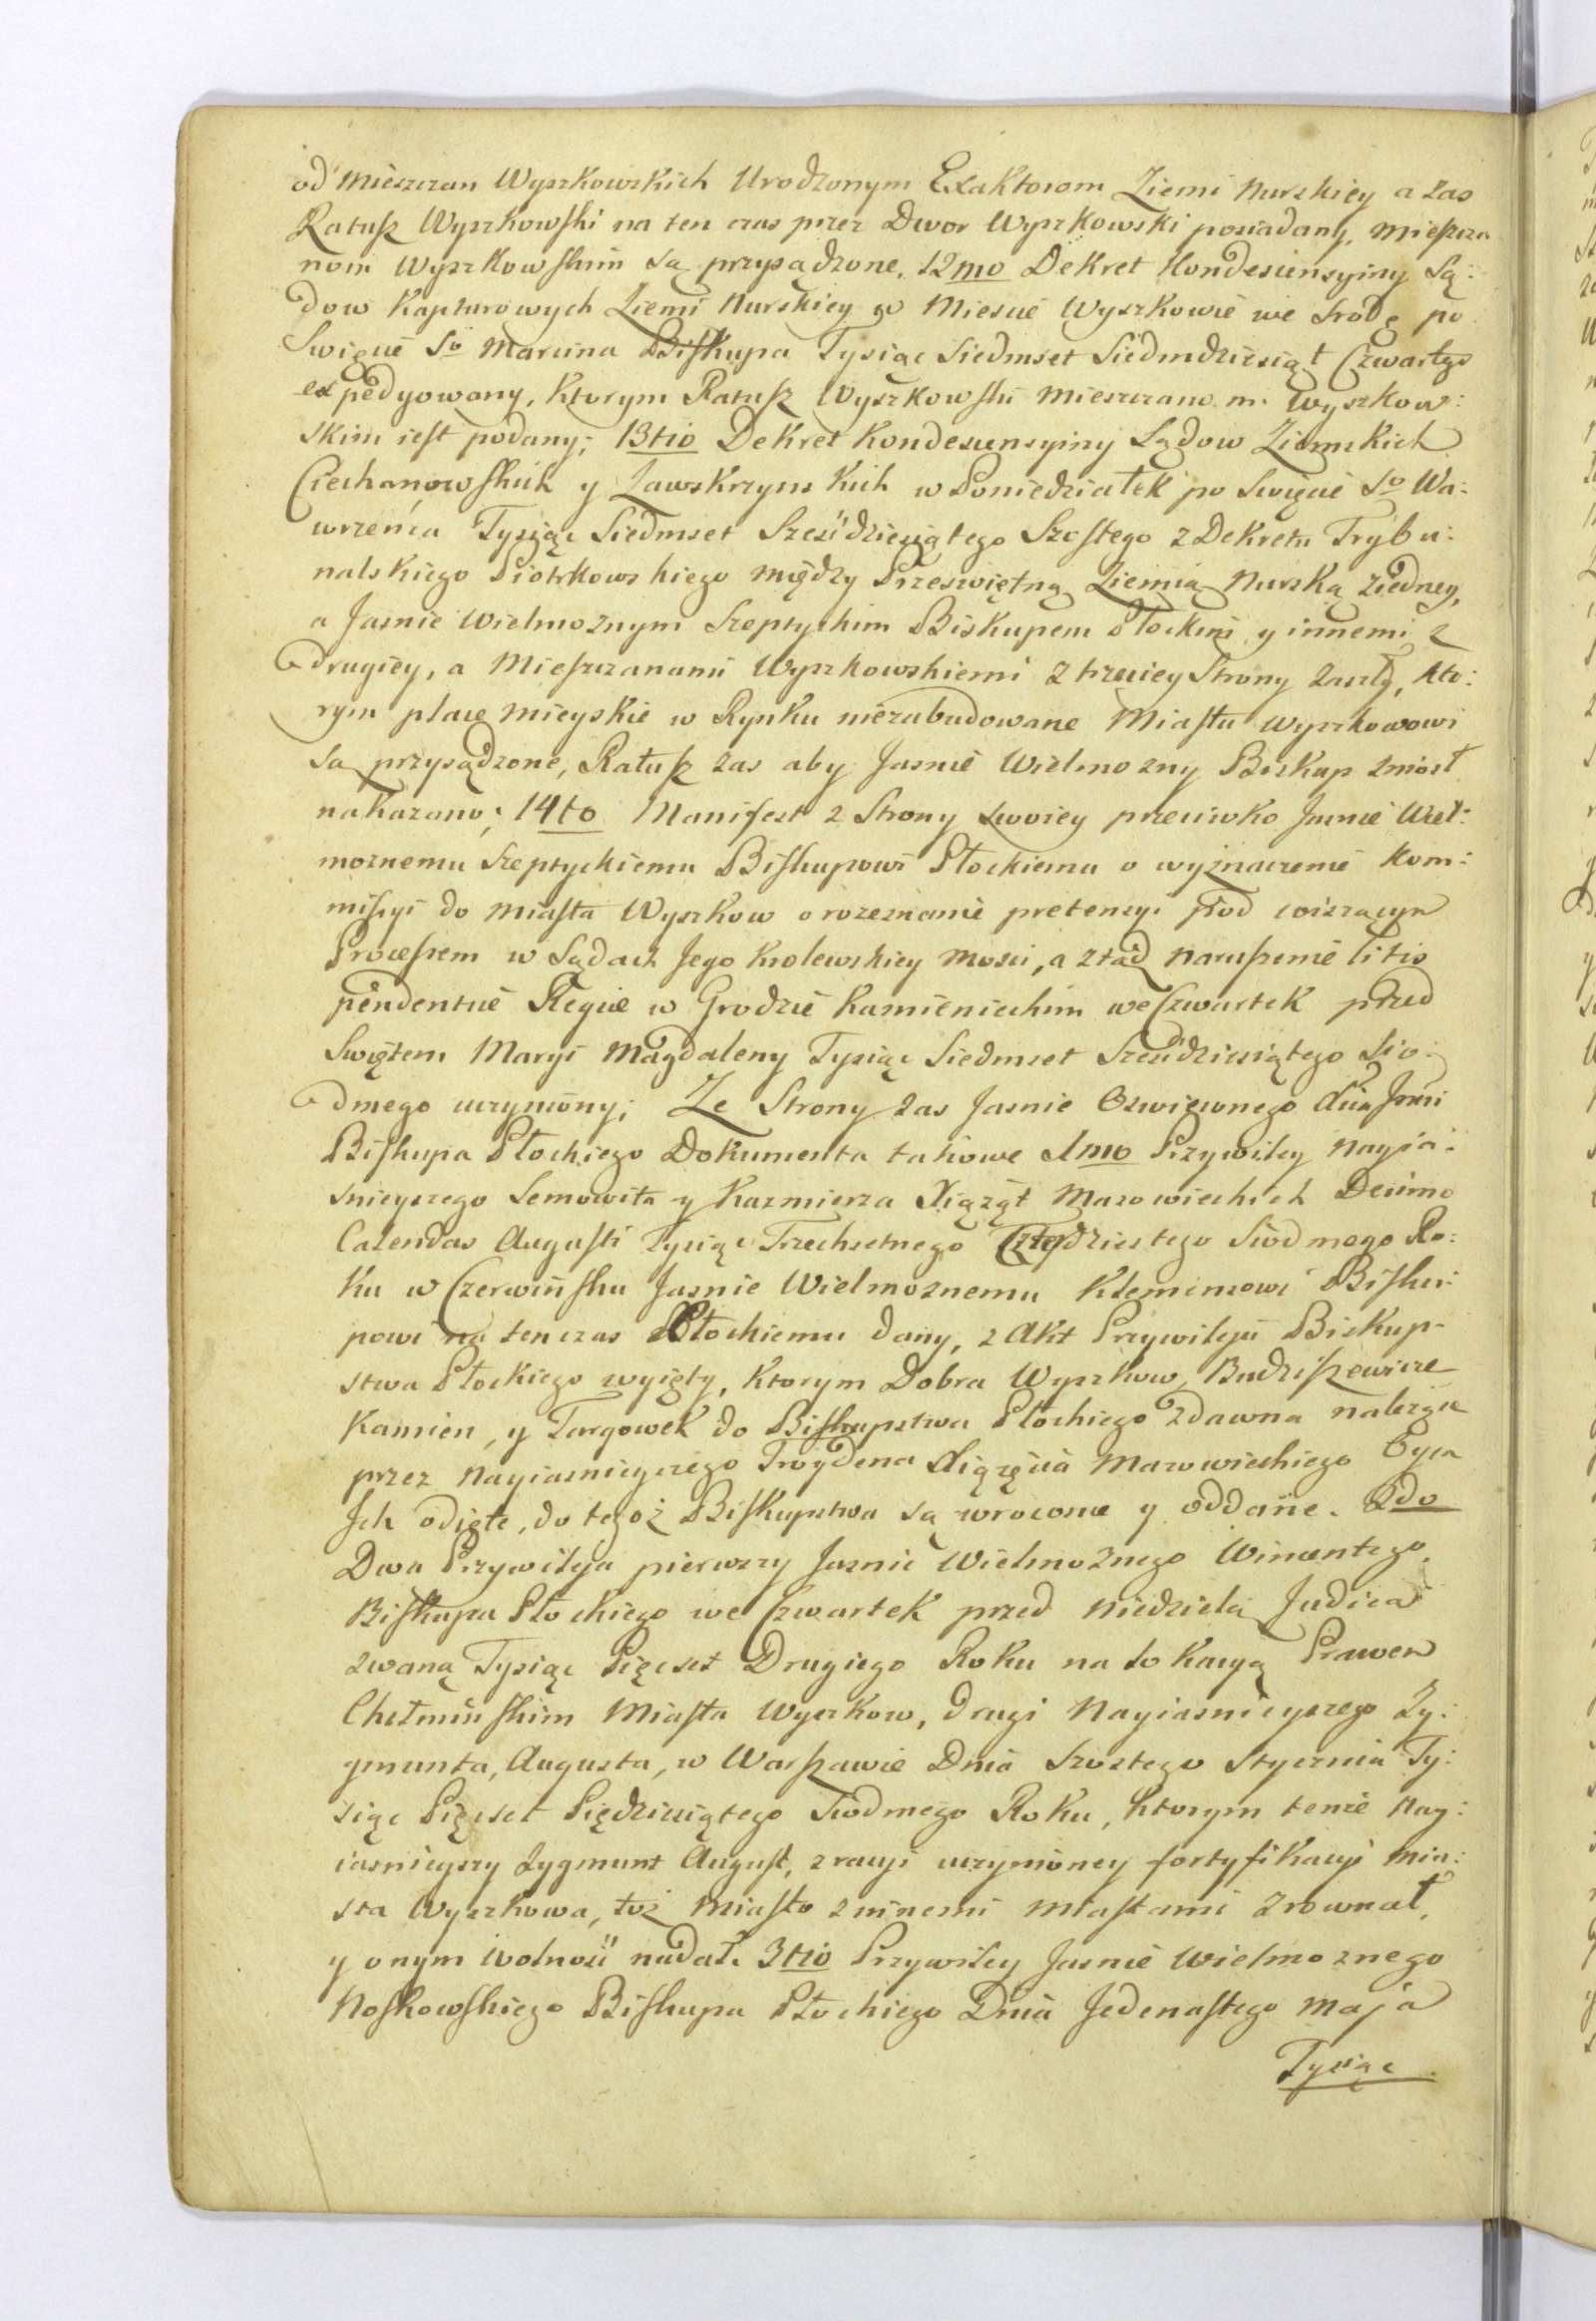 od Mieszczan Wyszkowskich Urodzonym Exaktorom Ziemi Nurskiey a zas
Ratusz Wyszkowski na ten czas przez Dwor Wyszkowski posiadany, Mieszcza
nom Wyszkowskim są przysądzone. 12mo Dekret Kondescensyiny Są:
dow Kapturowych Ziemi Nurskiey w Miescie Wyszkowie we Srodę po
Swięcie So Marcina Biskupa Tysiąc Siedmset Siedmdziesiąt Czwartego
expedyowany, ktorym Ratusz Wyszkowski Mieszczanom Wyszkow:
skim iest podany; 13tio Dekret Kondescensyiny Sądow Ziemskich
Ciechanowskich y Zawskrzynskich w Poniedziałek po Swięcie So Wa:
wrzeńca Tysiąc Siedmset Sześćdziesiątego Szostego z Dekretu Trybu:
nalskiego Piotrkowskiego między Przeświętną Ziemią Nurską ziedney,
a Jasnie Wielmoznym Szeptyckim Biskupem Płockim y innemi z
drugiey, a Mieszczanami Wyszkowskiemi z trzeciey Strony zaszły, kto:
rym place mieyskie w Rynku niezabudowane Miastu Wyszkowowi
są przysądzone, Ratusz zas aby Jasnie Wielmozny Biskup zniosł
nakazano; 14to Manifest z Strony swoiey przeciwko Jasnie Wiel:
moznemu Szeptyckiemu Biskupowi Płockiemu o wyznaczenie Kom:
missyi do Miasta Wyszkow o rozeznanie pretensyi pod wiszącym
Processem w Sądach Jego Krolewskiey Mosci, a ztąd naruszenie litis
pendentiae Regiae w Grodzie Kamienieckim we Czwartek przed
Swiętem Maryi Magdaleny Tysiąc Siedmset Sześćdziesiątego Sio:
dmego uczyniony; Ze Strony zas Jasnie Oswieconego Xcia Jmci
Biskupa Płockiego Dokumenta takowe 1mo Przywiley Nayja:
snieyszego Semowita y Kazmierza Xiążąt Mazowieckich Decimo
Calendas Augusti Tysiąc Trzechsetnego Czterdziestego Siodmego Ro:
ku w Czerwińsku Jasnie Wielmoznemu Klemensowi Bisku:
powi na ten czas Płockiemu dany, z Akt Przywilejii Biskup-
stwa Płockiego wyięty, ktorym Dobra Wyszkow, Budziszewice
Kamien, y Targowek do Biskupstwa Płockiego zdawna nalezące
przez Nayiasnieyszego Troydena Xiążęcia Mazowieckiego Oyca
Jch odięte, do tegoż Biskupstwa są wrocone y oddane. 2do
Dwa Przywileja pierwszy Jasnie Wielmożnego Wincentego
Biskupa Płockiego we Czwartek przed Niedzielą Judica
zwaną Tysiąc Pięćset Drugiego Roku na lokacyą Prawem
Chełmińskim Miasta Wyszkow, drugi Nayiasnieyszego Zy:
gmunta, Augusta, w Warszawie Dnia Szostego Stycznia Ty:
siąc Pięcset Pięćdziesiątego Siodmego Roku, ktorym tenże Nay:
iasnieyszy Zygmunt August, z racyi uczynioney fortyfikacyi Mia:
sta Wyszkowa, toż Miasto z innemi Miastami zrownał,
y onym wolnosći nadał. 3tio Przywiley Jasnie Wielmoznego
Noskowskiego Biskupa Płockiego Dnia Jedenastego Maja
Tysiąc